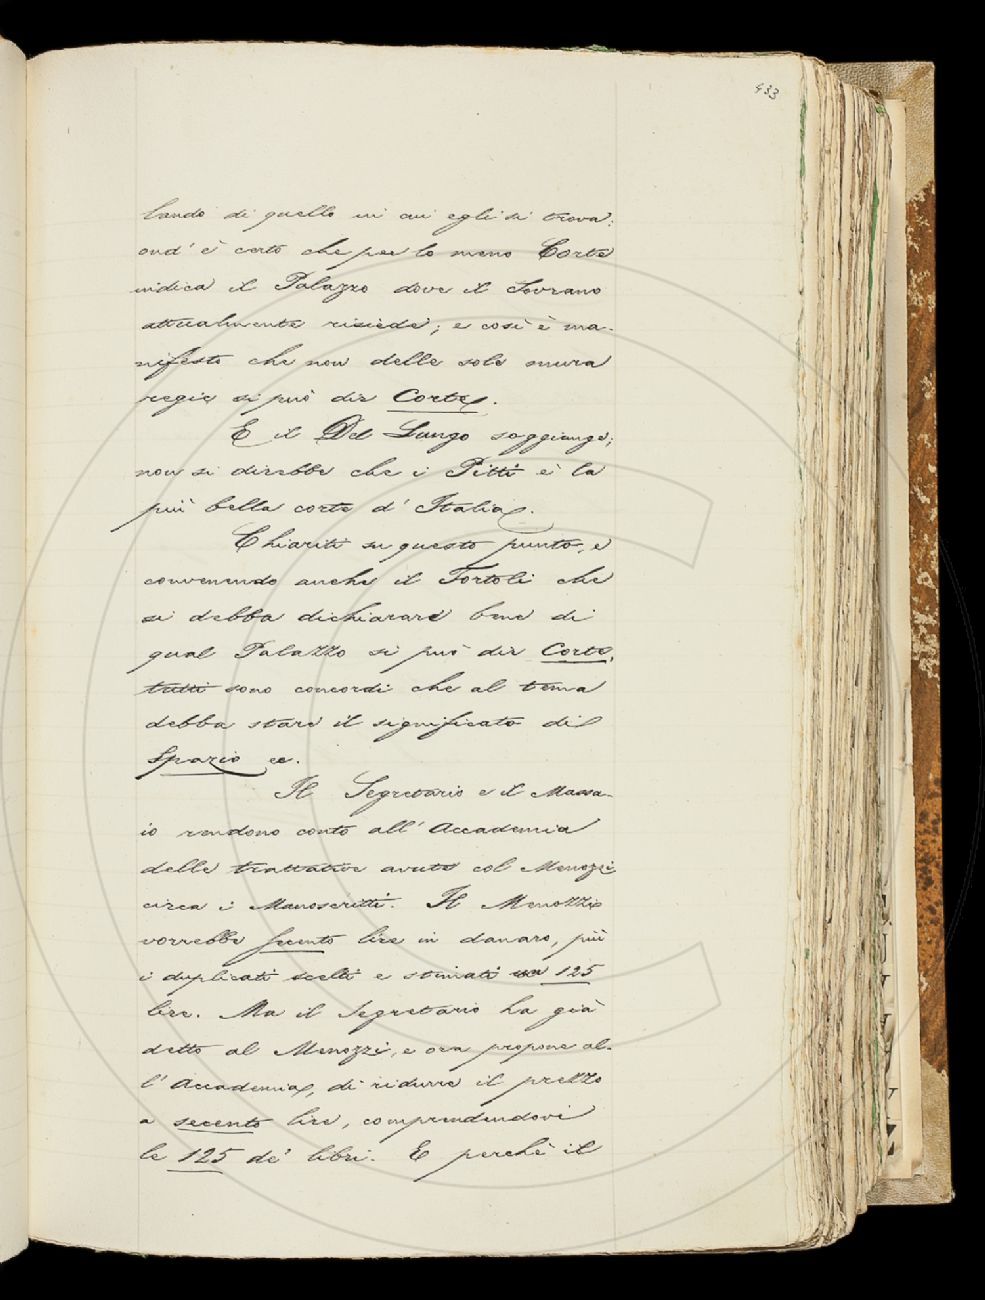 433
lando di quello in cui egli si trova:
ond' è certo che per lo meno Corte
indica il Palazzo dove il Sovrano
attualmente risiede; e così è ma-
nifesto che non delle sole mura
regie si può dir Corte.
E il Del Lungo soggiunge;
non si direbbe che i Pitti è la
più bella corte d' Italia.
Chiariti su questo punto, e
convenendo anche il Tortoli che
si debba dichiarare bene di
qual Palazzo si può dir Corte,
tutti sono concordi che al tema
debba stare il significato di
Spazio ec.
Il Segretario e il Massa-
io rendono conto all' Accademia
delle trattative avute col Menozzi
circa i Manoscritti. Il Menozzi
vorrebbe secento lire in danaro, più
i duplicati scelti e stimati 125
lire. Ma il Segretario ha già
detto al Menozzi, e ora propone al-
l' Accademia, di ridurre il prezzo
a secento lire, comprendendovi
le 125 de' libri. E perchè il